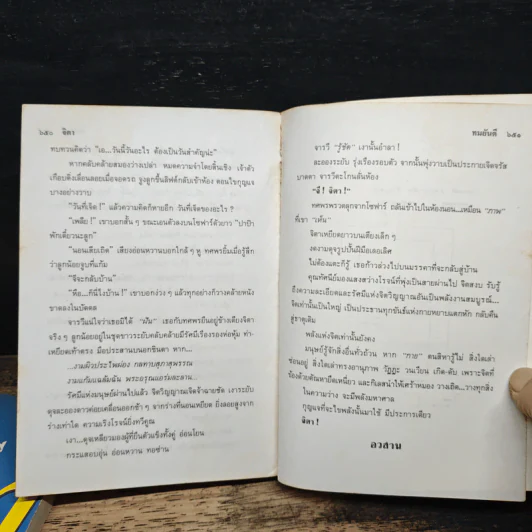 ๖๕๐ จิตา
ทบทวนคิดว่า "เอ...วันนี้วันอะไร ต้องเป็นวันสำคัญน่ะ"
หากตลับคล้ายสมองว่างเปล่า หมดความจำโดยสิ้นเชิง เจ้าตัว
เกือบดิ่งเลื่อนลอยเมื่อจอดรถ จูงลูกขึ้นลิฟต์กลับเข้าห้อง ตอนไขกุญแจ
บางอย่างวาบ
"วันที่เจิด !" แล้วความคิดก็หายอีก วันที่เจิดของอะไร ?
"เพลีย !" เขาบอกสั้น ๆ ขณะเอนตัวลงบนโซฟาร์ตัวยาว "ปาป๊า
พักเดี๋ยวนะลูก"
"นอนเสียเถิด" เสียงอ่อนหวานบอกใกล้ ๆ หู ทศพรยิ้มเมื่อรู้สึก
ว่าลูกน้อยจูบที่แก้ม
"จีจะกลับบ้าน"
"หือ...ก็นี่ไงบ้าน !" เขาบอกง่วง ๆ แล้วทุกอย่างก็วางคล้ายหนัง
ขาดลงในบัดดล
จารวีแน่ใจว่าเธอมิได้ "ฝัน" เธอกับทศพรยืนอยู่ข้างเตียงจิตา
จริง ๆ ลูกน้อยอยู่ในชุดขาวระยับคล้ายมีรัศมีเรืองรองห่อหุ้ม ท่า-
เหยียดเท้าตรง มือประสานบนอกชินตา หาก...
...งามผิวประไพผ่อง กลทาบศุภาสุพรรณ
งามแก้มแฉล้มฉัน พระอรุณแอร่มละลาน...
รัศมีแห่งมนุษย์ผ่านไปแล้ว จิตวิญญาณเจิดจ้าฉายชัด เงาระยับ
ดุจละอองดาวค่อยเคลื่อนออกช้า ๆ จากร่างที่นอนเหยียด ยิ่งลอยสูงจาก
ร่างเท่าใด ความเรืองโรจน์ยิ่งทวีคูณ
เงา...ดุจเหลียวมองผู้ที่ยืนตัวแข็งทั้งคู่ อ่อนโยน
กระแสอบอุ่น อ่อนหวาน ทอซ่าน
ทมยันตี ๖๕๑
จารวี "รู้ชัด" เงานั้นอำลา !
ละอองระยับ รุ่งเรืองรอบตัว จากนั้นพุ่งวาบเป็นประกายเจิดจรัส
บาดตา จารวีตะโกนลั่นห้อง
"จี ! จิตา !"
ทศพรพรวดลุกจากโซฟาร์ ถลันเข้าไปในห้องนอน...เหมือน "ภาพ"
ที่เขา "เห็น"
จิตาเหยียดยาวบนเตียงเล็ก ๆ
งดงามดุจรูปปั้นฝีมือเลอเลิศ
ไม่ต้องแตะก็รู้ เธอก้าวล่วงไปบนมรรคาที่จะกลับสู่บ้าน
คุณทัศนีย์มองแสงสว่างโรจน์ที่พุ่งเป็นสายผ่านไป จิตสงบ รับรู้
ถึงความละเอียดและรัศมีแห่งจิตวิญญาณอันเป็นพลังงานสมบูรณ์...
จิตเท่านั้นเป็นใหญ่ เป็นประธานทุกขันธ์แห่งกายหยาบแตกหัก กลับคืน
สู่ธาตุเดิม
พลังแห่งจิตเท่านั้นยังคง
มนุษย์รู้จักสิ่งอื่นทั่วถ้วน หาก "กาย" ตนสิหารู้ไม่ สิ่งใดเล่า
ซ่อนอยู่ สิ่งใดเล่าทรงอานุภาพ วัฏฏะ วนเวียน เกิด-ดับ เพราะจิตที่
ข้องด้วยตัณหายึดเหนี่ยว และกิเลสนำให้เศร้าหมอง วางเถิด...วางทุกสิ่ง
ในความว่าง จะมีพลังมหาศาล
กุญแจที่จะไขพลังนั้นมาใช้ มีประการเดียว
จิตา !
อวสาน